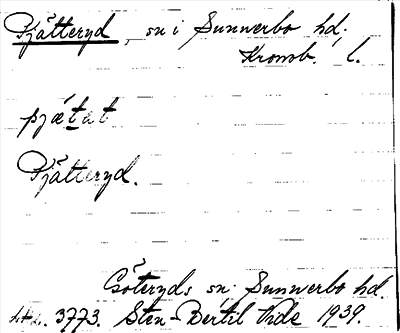 Pjätteryd, sn i Sunnerbo hd.
Kronob. l.
pjætat
Pjätteryd.
Göteryds sn. Sunnerbo hd.
3773. Sten-Bertil Vide 1939.